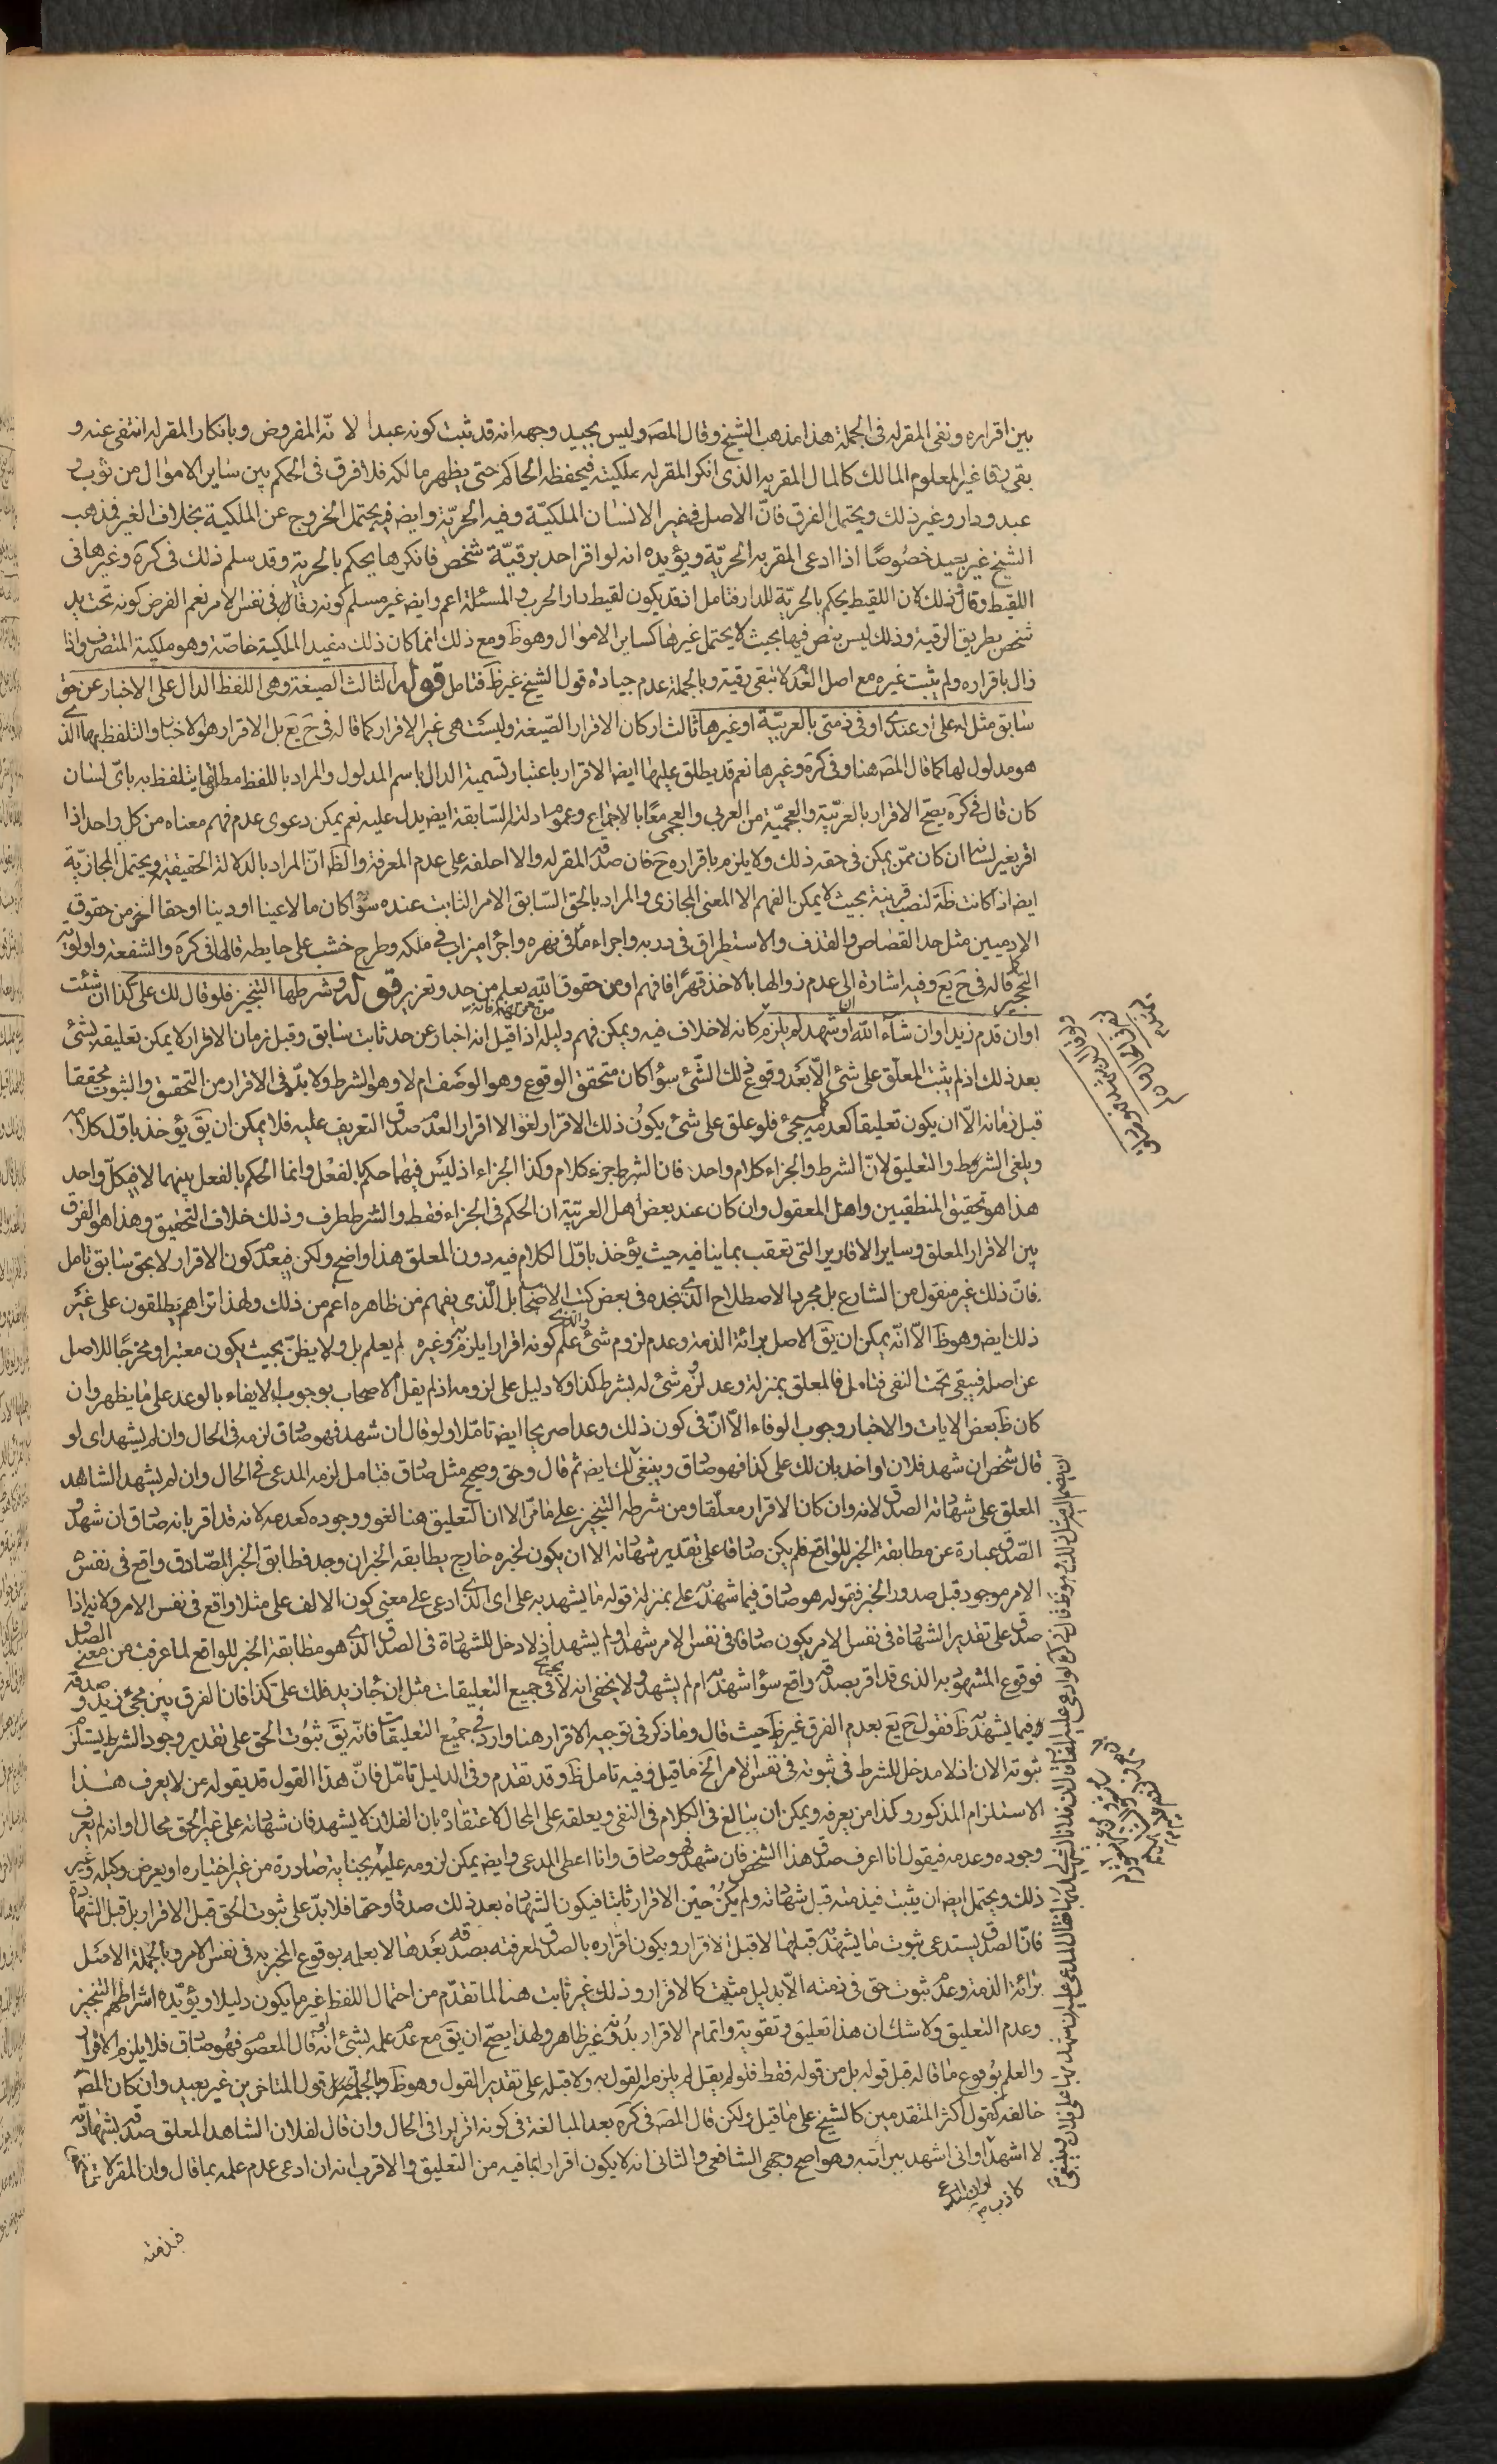 بين اقراره ونفى المقر له فى الجملة هذا مذهب الشيخ وقال المصَ وليس بجيد وجهه انه قد ثبت كونه عبدا لا نّه المفروض وبانكار المقر له انتفى عنه و
بقى رقا غير المعلوم المالك كالمال المقر به الذى انكر المقر له ملكيته فيحفظه الحاكم حتى يظهر مالكه فلا فرق فى الحكم بين ساير الاموال من ثوب و
عبد ودار وغير ذلك ويحتمل الفرق فانّ الاصل فى غير الانسان الملكيّة وفيه الحريّة وايضَ فيه يحتمل الخروج عن الملكية بخلاف الغير فمذهب
الشيخ غير بعيد خصُوصًا اذا ادعى المقر به الحريّة ويؤيده انه لو اقر احد برقيّة شخص فانكرها يحكم بالحرية وقد سلم ذلك فى كرَة وغيرها فى
اللقيط وقال ذلك لان اللقيط يحكم بالحريّة للدار فتامل اذ قد يكون لقيط دار الحرب والمسئلة اعم وايضَ غير مسلم كونه رقا فى نفس الامر نعم الفرض كونه تحت يد
شخص بطريق الرقية وذلك ليس بنص فيها بحيث لا يحتمل غيرها كساير الاموال وهو ظَ ومع ذلك انما كان ذلك مفيد الملكية خاصّة وهو ملكية المتصرف واذا
زال باقراره ولم يثبت غيره مع اصل العدَم لا تبقى رقية وبالجملة عدم جيادة قول الشيخ غير ظَ فتامل قوله الثالث الصيغة وهى اللفظ الدال على الاخبار عن حق
سابق مثل له على او عندى او فى ذمتى بالعربيّة او غيرها ثالث اركان الاقرار الصّيغة وليست هى غير الاقرار كما قاله فى حَ يَع بل الاقرار هو الاخبار والتلفظ بها الذى
هو مدلول لها كما قال المصَ هنا وفى كرَة وغيرها نعم قد يطلق عليها ايضَ الاقرار باعتبار تسمية الدال باسم المدلول والمراد باللفظ مطلق ما يتلفظ به باىّ لسان
كان قال فى كرَة يصّح الاقرار بالعربيّة والعجميّة من العربي والعجمى معًا بالاجماع وعموم ادلته السّابقة ايضَ يدل عليه نعم يمكن دعوى عدم فهم معناه من كل واحد اذا
اقر بغير لسانه ان كان ممّن يمكن فى حقه ذلك ولا يلزم باقراره حَ فان صدقه المقر له والا احلفه على عدم المعرفة والظَ انّ المراد بالدلالة الحقيقية ويحتمل المجازيّة
ايضَ اذا كانت ظَة لنصب قرينة بحيث لا يمكن الفهم الا المعنى المجازى والمراد بالحق السّابق الامر الثابت عنده سوٓاء كان مالا عينا او دينا او حقا اخر من حقوق
الادميين مثل حد القصاص والقذف والاستطراق فى دربه واجراء ماء فى نهره واجراء ميزاب فى ملكه وطرح خشب على حايطه قالها فى كرَة والشفعة واولوية
التحجير قاله فى حَ يَع وفيه اشارة الى عدم زوالها بالاخذ قهرًا فافهم او من حقوق الله يعلم من حد وتعزير قوله وشرطها التنجيز فلو قال لك على كذا ان شئت
او ان قدم زيد او ان شاء الله او ان شهد لم يلزم كانه لا خلاف فيه ويمكن فهم دليله اذا قيل انه اخبار عن حد ثابت سابق وقبل زمان الاقرار لا يمكن تعليقه بشئ
بعد ذلك اذ لم يثبت المعلّق على شئ الّا بعَد وقوع ذلك الشئ سوٓاء كان متحقق الوقوع وهو الوصَف ام لا وهو الشرط ولا بدّ فى الاقرار من التحقيق والثبوت محققا
قبل زمانه الّا ان يكون تعليقا كعدمه كما سيجئ فلو علق على شئ يكون ذلك الاقرار لغوا لا اقرار العدم صدق التعريف عليه فلا يمكن ان يقَ يؤخذ باوّل كلامه
ويلغى الشرط والتعليق لانّ الشرط والجزاء كلام واحد فان الشرط جزء كلام وكذا الجزاء اذ ليسَ فيهما حكم بالفعل وانما الحكم بالفعل بينهما لا فى كلّ واحد
هذا هو تحقيق المنطقيين واهل المعقول وان كان عند بعض اهل العربيّة ان الحكم فى الجزاء فقط والشرط ظرف وذلك خلاف التحقيق وهذا هو الفرق
بين الاقرار المعلق وساير الاقارير التى تعقب بما ينافيه حيث يؤخذ باوّل الكلام فيه دون المعلق هذا واضح ولكن بعد كون الاقرار لا بحق سابق تامل
فانّ ذلك غير منقول من الشارع بل مجرد الاصطلاح الذى نجده فى بعض كتب الاصحاب بل الّذى يفهم من ظاهره اعم من ذلك ولهذا تراهم يطلقون على غير
ذلك ايضَ وهو ظَ الّا انّه يمكن ان يقَ الاصل برائة الذمة وعدم لزوم شئ والذى علم كونه اقرارا يلزمه وغيره لم يعلم بل ولا يظنّ بحيث يكون معتبرا ومخرجًا للاصل
عن اصله فيبقى تحت النفى فتامل فالمعلق بمنزلة وعد لزوم شئ له بشرط كذا ولا دليل على لزومه اذ لم يقل الاصحاب بوجوب الايفاء بالوعد على ما يظهر وان
كان ظَ بعض الايات والاخبار وجوب الوفاء الّا انّ فى كون ذلك وعدا صريحا ايضَ تامّلا ولو قال ان شهد فهو صادق لزمه فى الحال وان لم يشهد اى لو
قال شخص ان شهد فلان او احد بان لك على كذا فهو صادق وينبغى لك ايضَ ثم قال وحق وصحيح مثل صادق فتامل لزمه المدعى فى الحال وان لم يشهد الشاهد
المعلق على شهادته الصدق لانه وان كان الاقرار معلّقا ومن شرطه التنجيز على ما مرّ الا ان التعليق هنا لغو ووجوده كعدمه لانه قد اقر بانه صادق ان شهد
الصّدق عبارة عن مطابقة الخبر للواقع فلم يكن صادقا على تقدير شهادته الا ان يكون لخبره خارج يطابقه الخبر ان وجد فطابق الخبر الصّادق واقع فى نفس
الامر موجود قبل صدور الخبر فقوله هو صادق فيما شهد به على بمنزلة قوله ما يشهد به على اى الّذى ادعى على معنى كون الالف على مثلا واقع فى نفس الامر ولانه اذا
صدق على تقدير الشهادة فى نفس الامر يكون صادقا فى نفس الامر شهد او لم يشهد اذ لا دخل للشهادة فى الصدق الذى هو مطابقة الخبر للواقع لما عرفت من معنى الصدق
فوقوع المشهود به الذى قد اقر بصدقه واقع سوٓاء شهد به ام لم يشهد ولا يخفى انه لا يجرى فى جميع التعليقات مثل ان جاء زيد فلك على كذا فان الفرق بين مجئ زيد وصدقه
فيما يشهد به ظَ فقول حَ يَع بعدم الفرق غير ظَ حيث قال وما ذكر فى توجيه الاقرار هنا وارد فى جميع التعليقات فانّه يقَ ثبوت الحق على تقدير وجود الشرط يستلزم
ثبوته الان اذ لا مدخل للشرط فى ثبوته فى نفس الامر الخ ما قيل وفيه تامل ظَ وقد تقدم وفى الدليل تامّل فانّ هذا القول قد يقوله من لا يعرف هذا
الاستلزام المذكور وكذا من يعرفه ويمكن ان يبالغ فى الكلام فى النفى ويعلقه على المحال لاعتقاده بان الفلان لا يشهد فان شهادته على غير الحق محال او انه لم يعرف
وجوده وعدمه فيقول انا اعرف صدق هذا الشخص فان شهد فهو صادق وانا اعطى المدعى وايضَ يمكن لزومه عليه بجناية صادرة من غير اختياره او بعرض وكيله وغير
ذلك ويحتمل ايضَ ان يثبت فى ذمته قبل شهادته ولم يكن حين الاقرار ثابتا فيكون الشهادة بعد ذلك صدقا وحقا فلا يدلّ على ثبوت الحق قبل الاقرار بل قبل الشهادة
فانّ الصدق يستدعى ثبوت ما يشهد به قبلها لا قبل الاقرار ويكون اقراره بالصدق لمعرفته بصدقه بعدها لا بعلمه بوقوع المخبر به فى نفس الامر وبالجملة الاصل
برائة الذمة وعدم ثبوت حق فى ذمته الّا بدليل مثبت كالاقرار وذلك غير ثابت هنا لما تقدّم من احتمال اللفظ غير ما يكون دليلا ويؤيّده اشتراطهم التنجيز
وعدم التعليق ولا شك ان هذا تعليق وتقويته واتمام الاقرار بدونه غير ظاهر ولهذا يصحّ ان يقَ مع عدم علمه بشئ انه لو قال المعصوم فهو صادق فلا يلزم الاقرار
والعلم بوقوع ما قاله قبل قوله بل من قوله فقط فلو لم يقل لم يلزم القول به ولا قبله على تقدير القول وهو ظَ وبالجملة قول المتاخرين غير بعيد وان كان المصَ
خالفه كقول اكثر المتقدمين كالشيخ على ما قيل ولكن قال المصَ فى كرَة بعد المبالغة فى كونه اقرارا فى الحال وان قال لفلان الشاهد المعلق صدقه بشهادته
لا اشهد او انى اشهد ببرائته وهو اصح وجهى الشافعى والثانى انه لا يكون اقرارا لما فيه من التعليق والاقرب انه ان ادعى عدم علمه بما قال وان المقر لا
فى ذمته